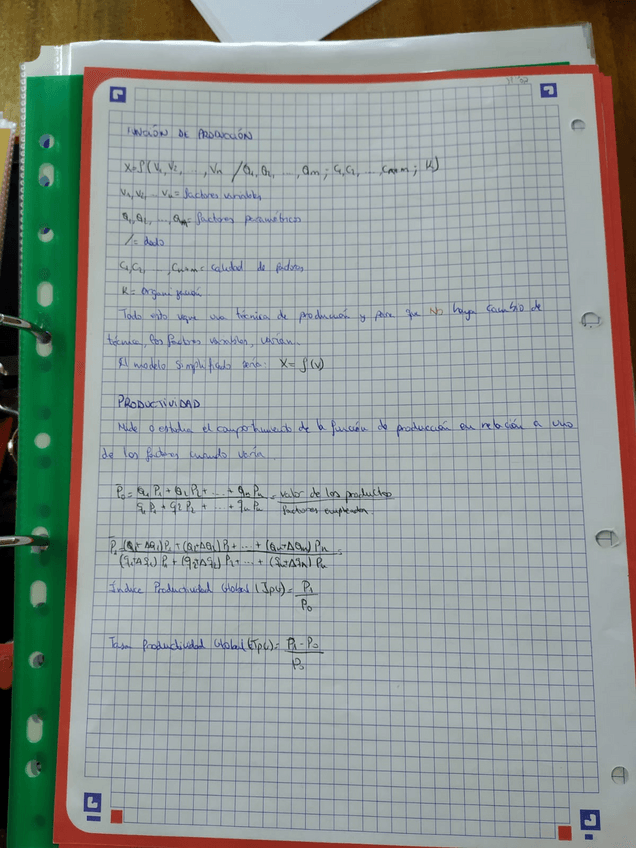 FUNCIÓN DE PRODUCCIÓN
X=f(V1, V2, ..., Vn / Q1, Q2, ..., Qm ; C1, C2, ..., Cn+m ; K)
V1, V2 ... Vn = factores variables
Q1, Q2, ..., Qm = factores paramétricos
/ = dado
C1, C2, ..., Cn+m = calidad de factores
K = Organización
Todo esto sigue una técnica de producción y para que NO haya cambio de
técnica, los factores variables, varían.
El modelo simplificado sería: X = f(v)
PRODUCTIVIDAD
Mide o estudia el comportamiento de la función de producción en relación a uno
de los factores cuando varía.
P0 = Q1 P1 + Q2 P2 + ... + Qn Pn = valor de los productos
q1 P1 + q2 P2 + ... + qn Pn factores empleados.
P1 = (Q1+ΔQ1) P1 + (Q2+ΔQ2) P2 + ... + (Qn+ΔQn) Pn =
(q1+Δq1) P1 + (q2+Δq2) P2 + ... + (qn+Δqn) Pn
Índice Productividad Global (IPG) = P1
P0
Tasa Productividad Global (TPG) = P1 - P0
P0